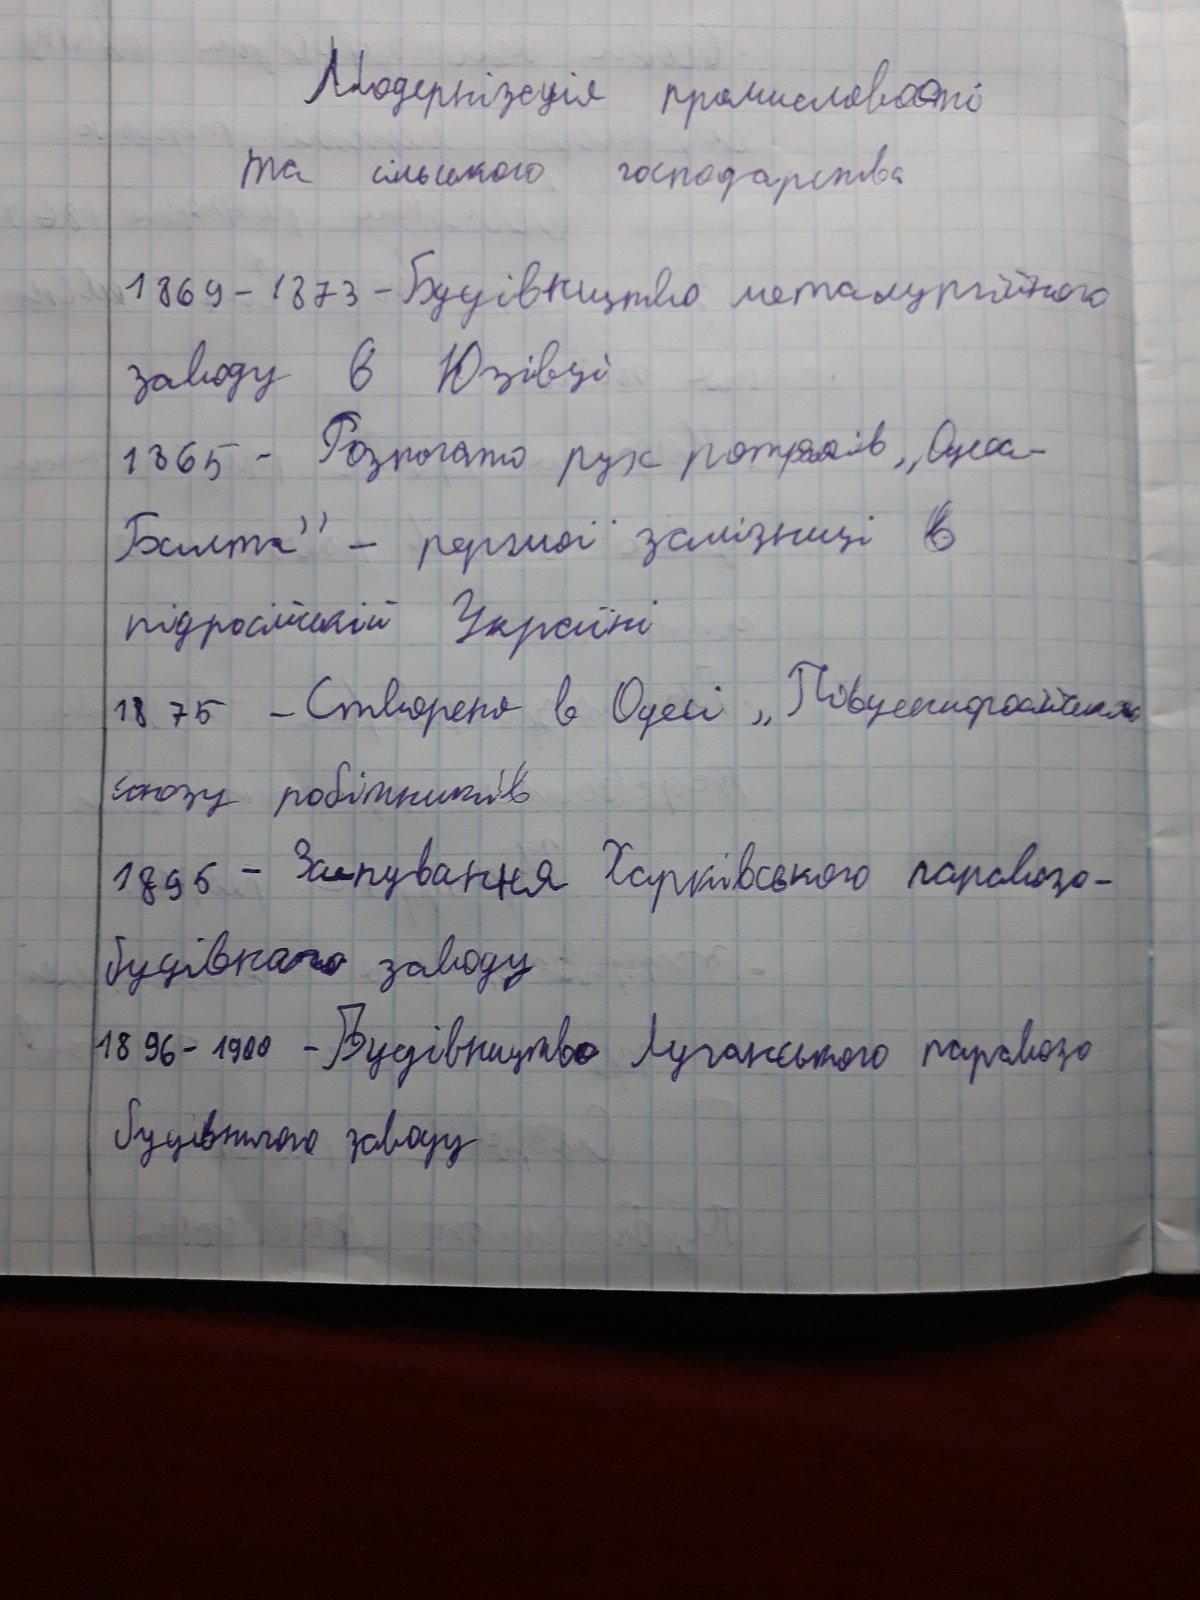 Модернізація промисловості
та сільського господарства
1869-1873-Будівництво металургійного
заводу в Юзівці
1865- Розпочато рух потягів „Одеса-
Балта" - першої залізниці в
підросійській Україні
1875 -Створення в Одесі „Південноросійського
союзу робітників
1895- Заснування Харківського паравозо-
будівного заводу
1896-1900 -Будівництво Луганського паравозо
будівного заводу